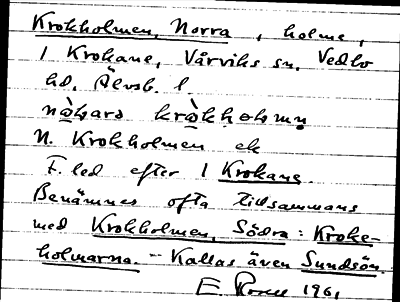 Krokholmen, Norra, holme,
i Krokane, Vårviks sn, Vedbo
hd, Älvsb. l.
nò̢ɽarə krò̢kho̢lmən
N. Krokholmen ek
F. led efter i Krokane.
Benämnes ofta tillsammans
med Krokholmen, Södra: Kroke-
holmarna. - Kallas även Sundsön.
E. 1961